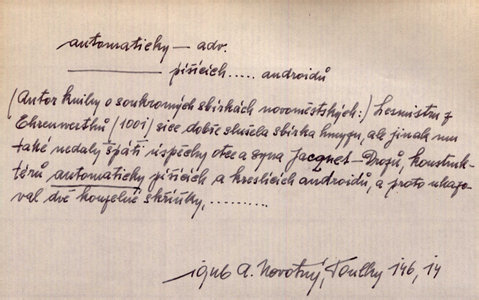 automaticky — adv.
——— píšících ..... androidů
(Autor knihy o soukromých sbírkách novoměstských:) Lermistru z
Ehrenwerthů (1001) sice dobře slušela sbírka hmyzu, ale jinak mu
také nedaly spáti úspěchy otce a syna Jacquet–Drozů, konstruk-
térů automaticky píšících a kreslících androidů, a proto ukazo-
val dvě kouzelné skříňky, ..........
A. Novotný, Toulky 146, 14